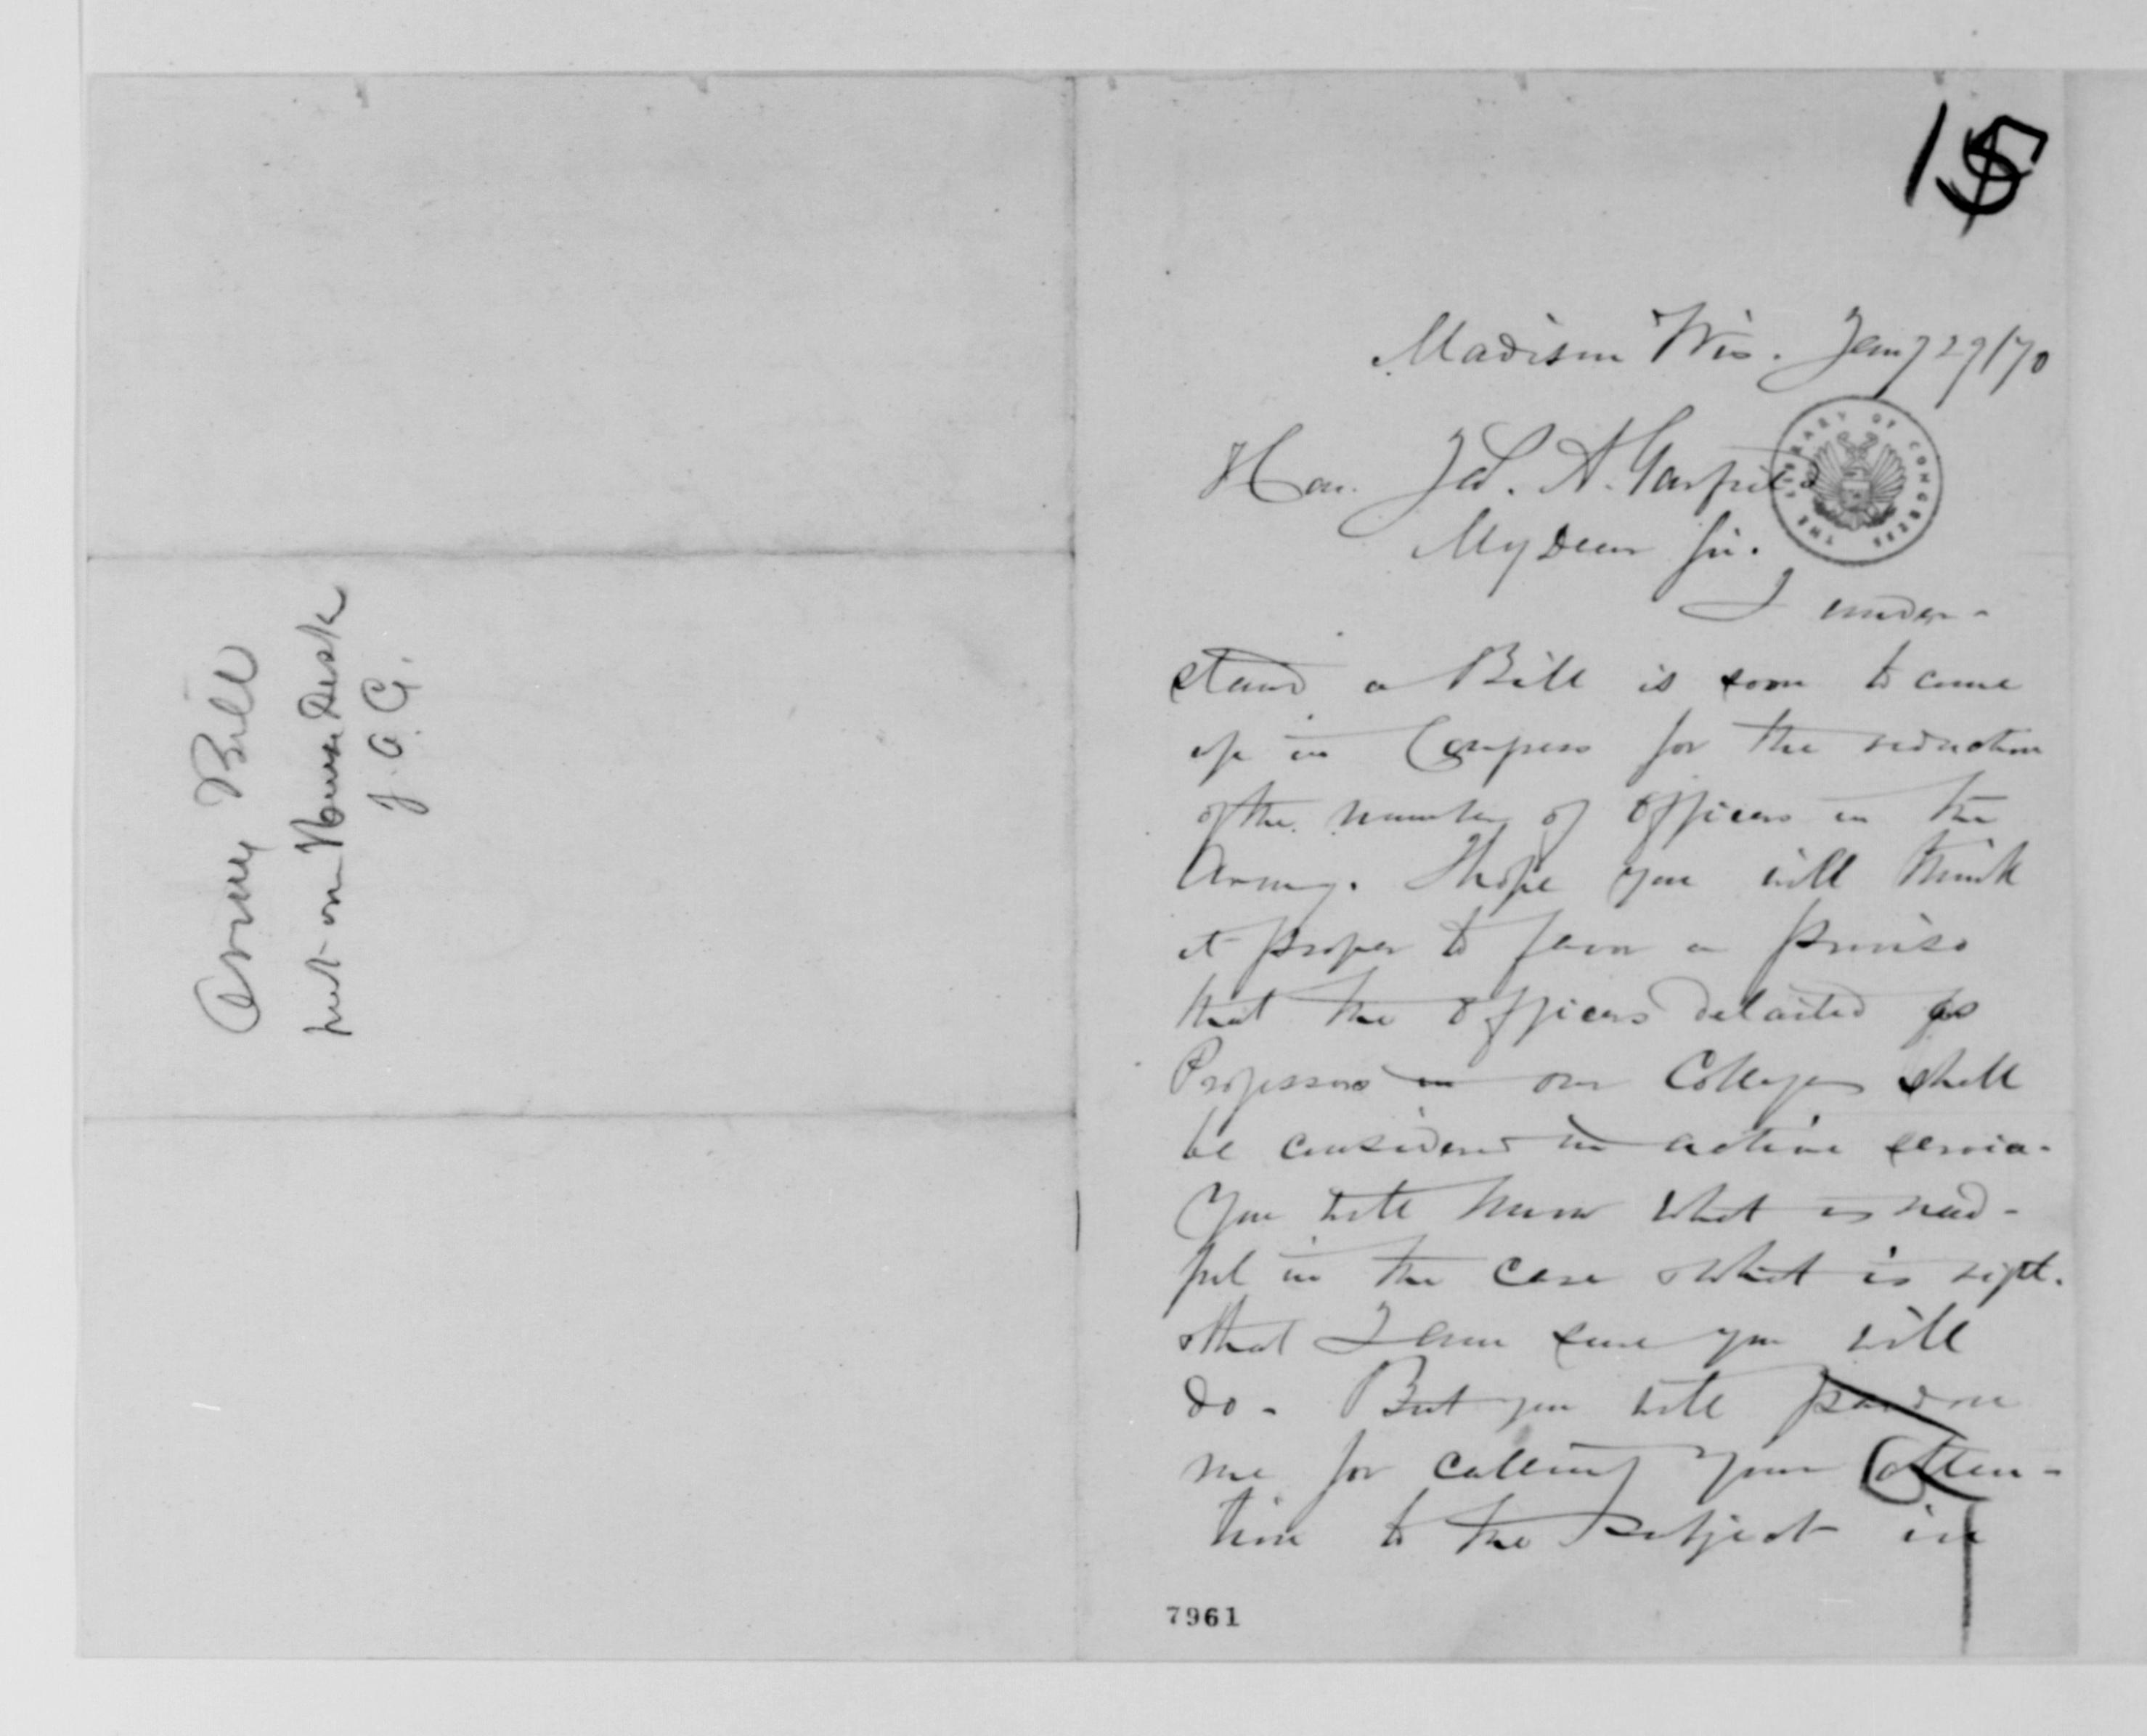 Army Bill
put on House Desk
J. A. G.
15
Madison Wis. Jany 29/70
Hon. Jas. A. Garfield
THE LIBRARY OF CONGRESS
My Dear Sir.
I under-
stand a Bill is soon to come
up in Congress for the reduction
of the number of officers in the
Army. I hope you will think
it proper to favor a proviso
that the officers detailed as
Professors in our Colleges shall
be considered in active service.
You will know what is need-
ful in the case & what is right.
& that I am sure you will
do - But you will pardon
me for calling your atten-
tion to the subject in
7961